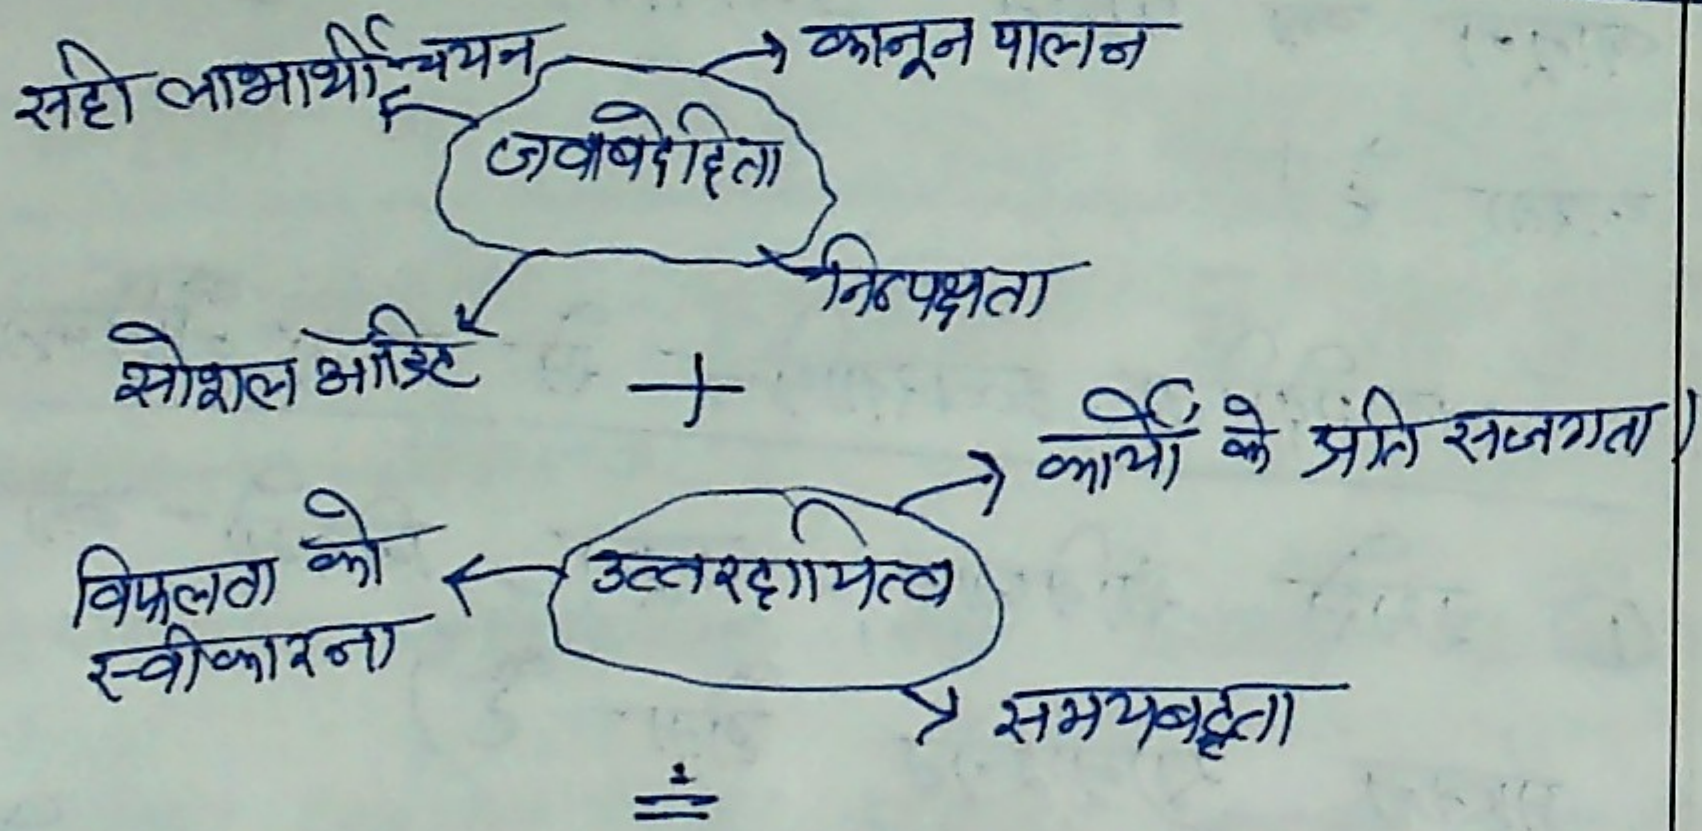 सही लाभार्थी चयन
कानून पालन
जवाबदेहिता
निष्पक्षता
सोशल ऑडिट
+
कार्यों के प्रति सजगता।
विफलता को
स्वीकारना
उत्तरदायित्व
समयबद्धता
=